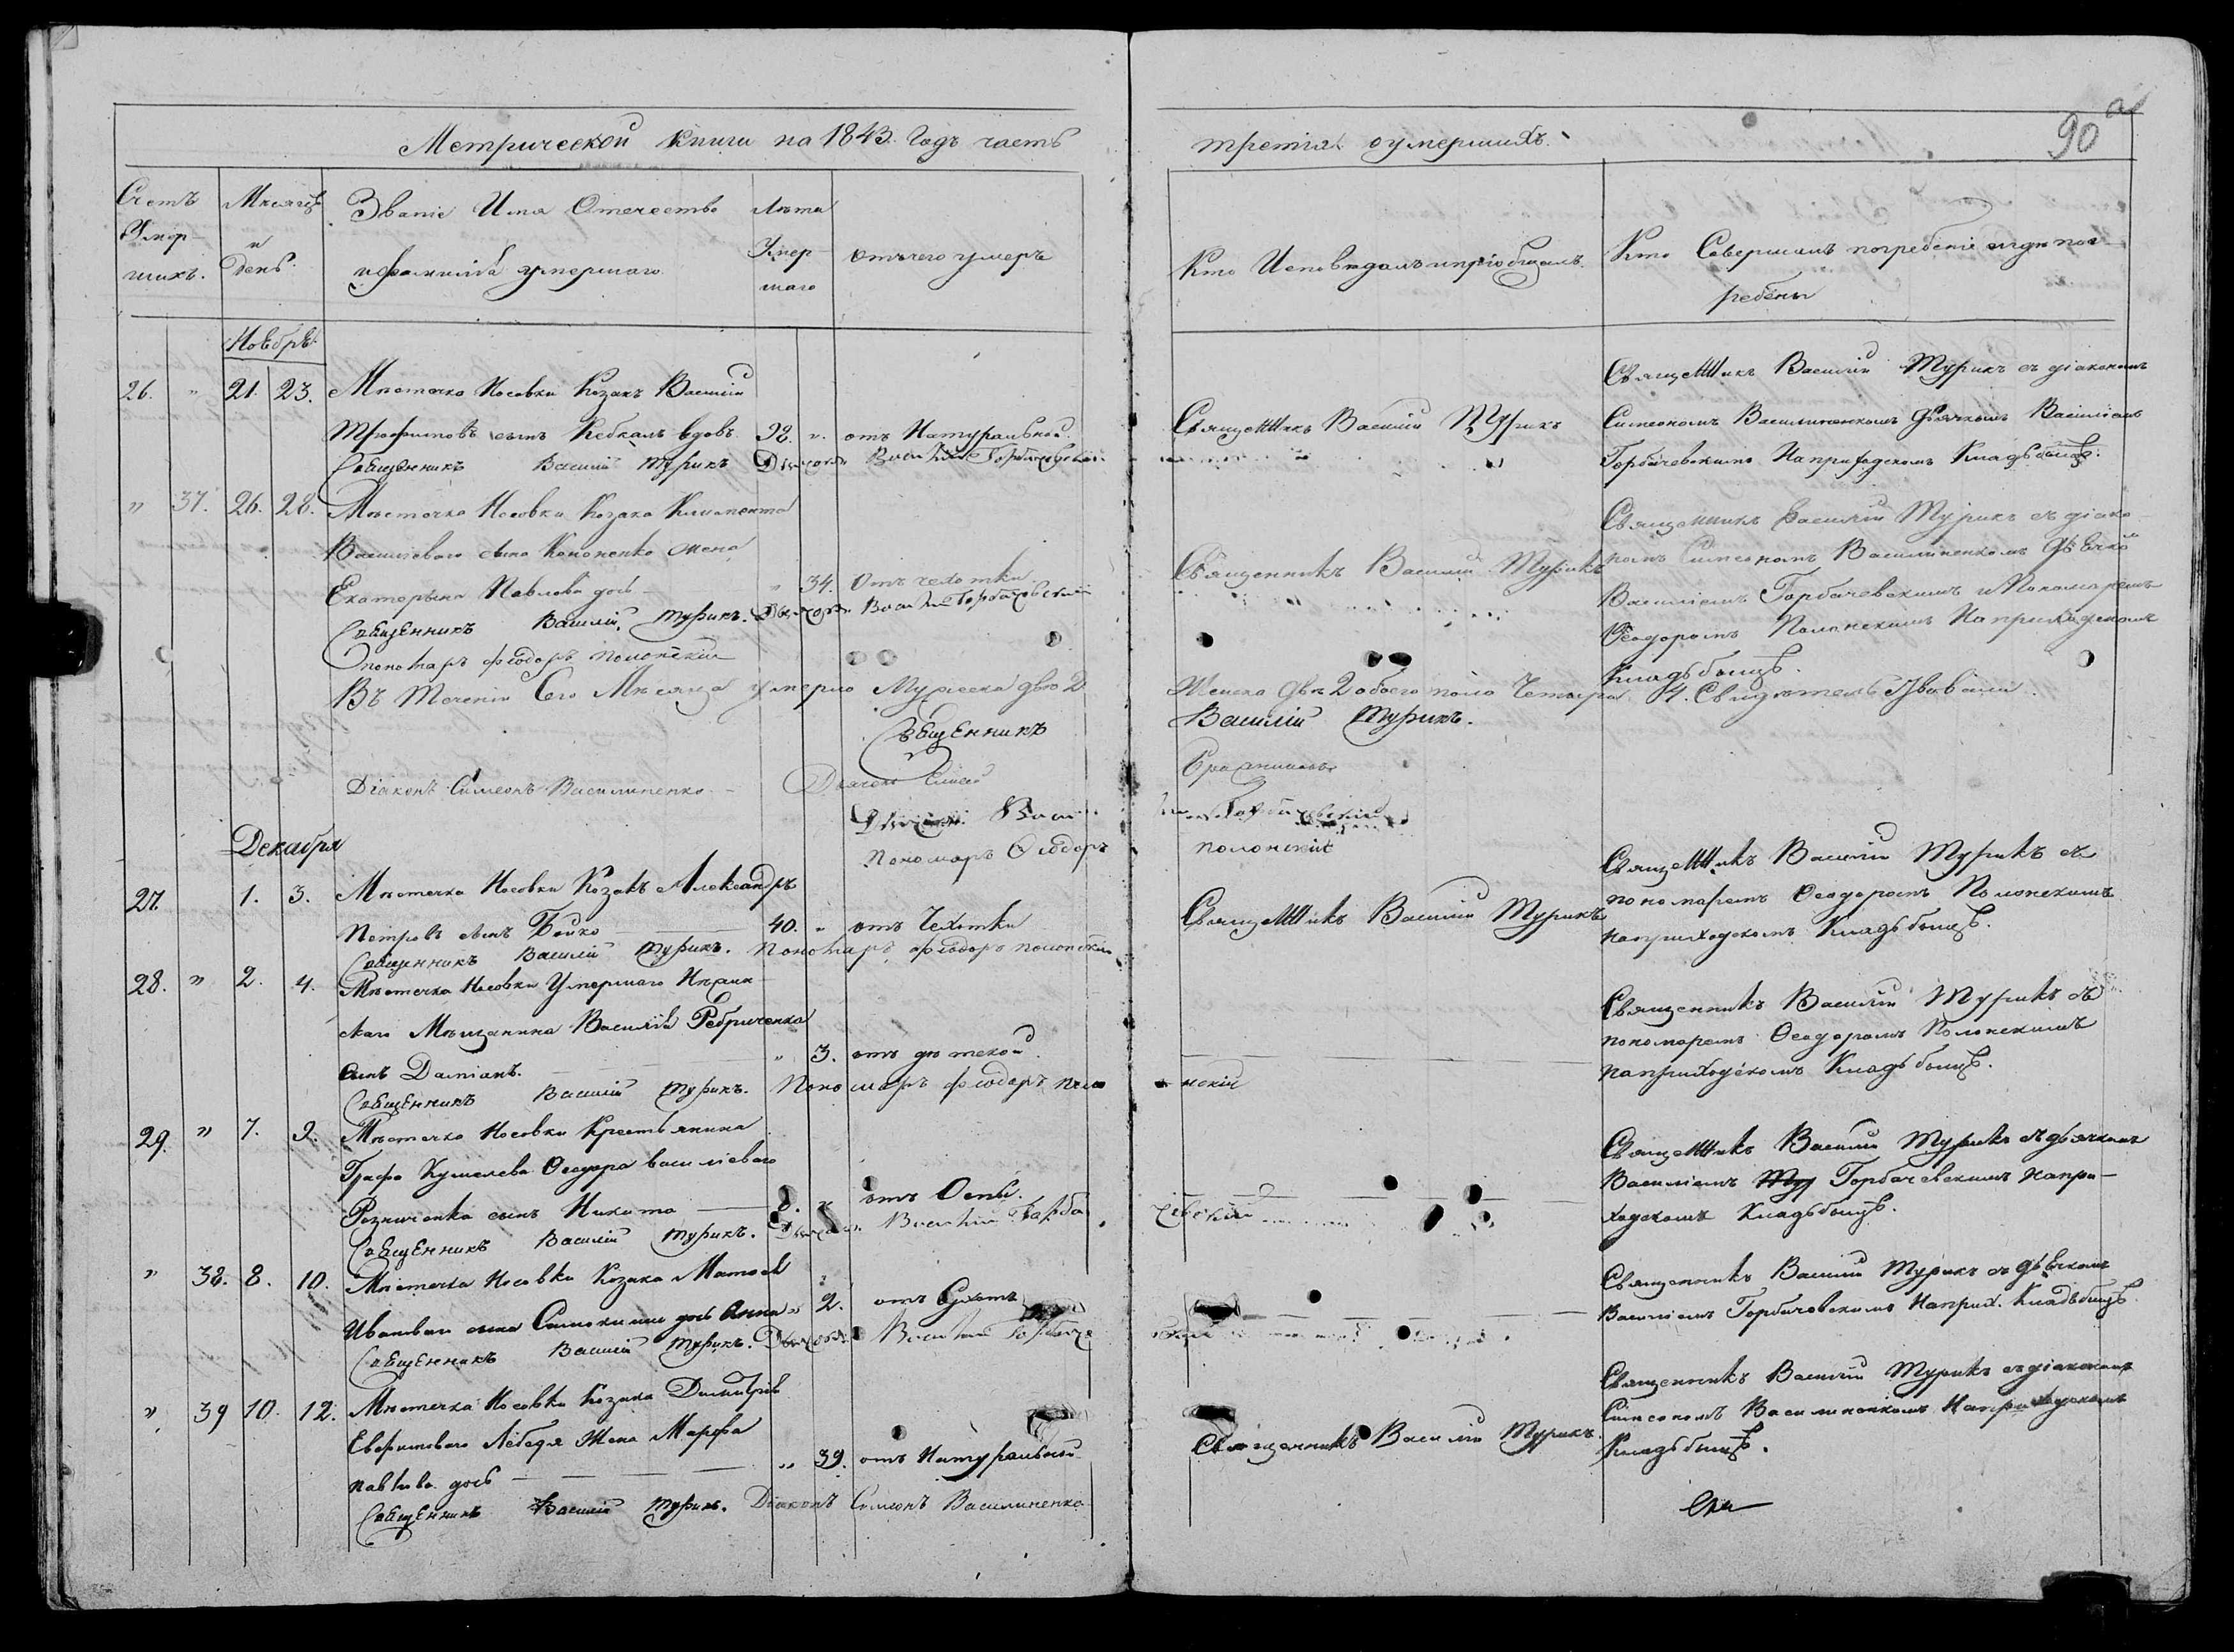 Метрической книги на 1843. Годъ часть третiя оумершихъ.
90
Счетъ Умер-шихъ.
Мѣсяцъ и День.
Званiе Имя Отечество
и фамилiя умершаго
Лѣта Умер-шаго
отъ чего умеръ
Кто Исповѣдалъ и прiобщалъ.
Кто Совершалъ погребенiе и гдѣ пог-
ребены
Ноябрь
26. " 21. 23. Мѣстечка Носовки Козакъ Василiй
Трофимовъ сынъ вдовъ 92. ". отъ Натуральной
Священникъ Василiй Турикъ
Священникъ Василiй Турикъ
Священникъ Василiй Турикъ съ дiакономъ
Симеономъ Василиненкомъ дьячкомъ Василiемъ
Горбачевскимъ На приходскомъ Кладьбищѣ.
" 37. 26. 28. Мѣстечка Носовки Козака Климента
Васильеваго сына Кононенко жена
Екатерына Павлова дочь " 34. Отъ чехотки
Священникъ Василiй Турикъ. Дьячокъ Василiй Горбачевскiй
Пономаръ Фіодоръ Полонскiй
Священникъ Василiй Турикъ
Священникъ Василiй Турикъ съ дiако-
номъ Симеономъ Василиненкомъ Дьячко
Василiемъ Горбачевскимъ и Пономаремъ
Ѳеодоромъ Полонскимъ На приходскомъ
Кладьбищѣ.
Въ Теченiи Сего Мѣсяца умерло Мужеска два 2 Женска двѣ 2 обоего пола Четыре 4. Свидѣтельствовали
Священникъ Василiй Турикъ.
Дiаконъ Симеонъ Василиненко
Дьячокъ
Пономаръ Ѳіодоръ Полонскiй
Декабря
27. 1. 3. Мѣстечка Носовки Козакъ Александръ
Петровъ сынъ Бойко 40. " отъ Чехотки
Священникъ Василiй Турикъ. Пономаръ Фіодоръ Полонскiй
Священникъ Василiй Турикъ
Священникъ Василiй Турикъ съ
пономаремъ Ѳеодоромъ Полонскимъ
наприходскомъ Кладьбищѣ.
28. " 2. 4. Мѣстечка Носовки Умершаго Нѣжин-
скаго Мѣщанина Василiя Ребриченка
сынъ Дамiанъ. " 3. отъ
Священникъ Василiй Турикъ. Пономаръ Фіодоръ Полонскiй
Священникъ Василiй Турикъ съ
пономаремъ Ѳеодоромъ Полонскимъ
наприходскомъ Кладьбищѣ.
29. " 7. 9. Мѣстечка Носовки Крестьянина
Графа Кушелева Ѳеодора Василiеваго
сынъ Никита 8. " отъ Оспы.
Священникъ Василiй Турикъ. Дьячокъ Василiй Горбачевскiй
Священникъ Василiй Турикъ съ дьячкомъ
Василiемъ Горбачевскимъ Напри-
ходскомъ Кладьбищѣ.
" 38. 8. 10. Мѣстечка Носовки Козака Матоея
Иванова сына дочь Анна " 2. отъ
Священникъ Василiй Турикъ. Дьячокъ Василiй
Священникъ Василiй Турикъ съ дьячкомъ
Василiемъ Горбачевскимъ Наприх. Кладьбищѣ
" 39 10. 12. Мѣстечка Носовки Козака Димитрiя
Лебедя Жена Марфа
Павлова дочь " 39. отъ Натуральной
Священникъ Василiй Турикъ. Дiаконъ Симеонъ Василиненко
Священникъ Василiй Турикъ.
Священникъ Василiй Турикъ съ дiакономъ
Симеономъ Василиненкомъ Наприходскомъ
Кладьбищѣ.